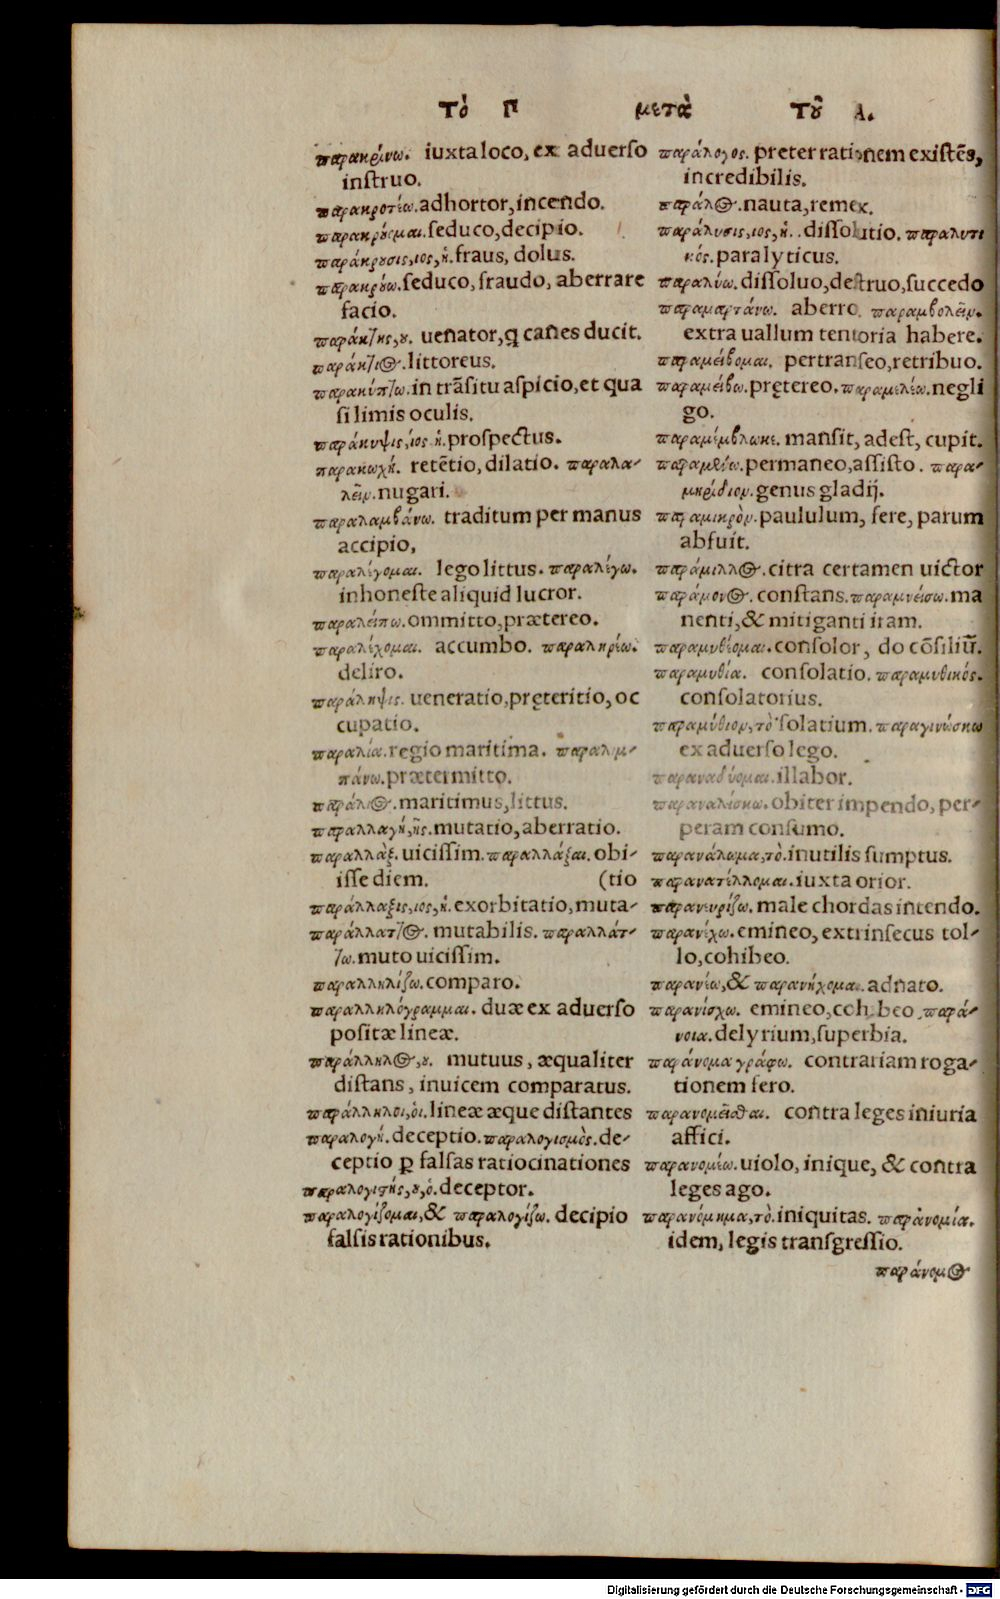 Τὸ Π μετὰ Τοῦ Α.
παρακρίνω. iuxta loco, ex aduerso
instruo.
παρακροτέω. adhortor, incendo.
παρακρούομαι. seduco, decipio.
παράκρουσις, ιος, ἡ. fraus, dolus.
παρακρούω. seduco, fraudo, aberrare
facio.
παράκτης, ου. uenator, q̄ canes ducit.
παράκτιος. littoreus.
παρακύπτω. in trāsitu aspicio, et qua
si limis oculis.
παράκυψις, ιος ἡ. prospectus.
παρακωχή. retētio, dilatio. παραλα-
λεῖν. nugari.
παραλαμβάνω. traditum per manus
accipio,
παραλέγομαι. lego littus. παραλέγω.
inhoneste aliquid lucror.
παραλείπω. ommitto, prætereo.
παραλέχομαι. accumbo. παραληρέω.
deliro.
παράληψις. ueneratio, pręteritio, oc
cupatio.
παραλία. regio maritima. παραλιμ-
πάνω. prætermitto.
παράλιος. maritimus, littus.
παραλλαγή, ῆς. mutatio, aberratio.
παραλλὰξ. uicissim. παραλλάξαι. obi-
isse diem. (tio
παράλλαξις, ιος, ἡ. exorbitatio, muta-
παράλλακτος. mutabilis. παραλλάτ-
τω. muto uicissim.
παραλληλίζω. comparo.
παραλληλόγραμμαι. duæ ex aduerso
positæ lineæ.
παράλληλος, ου. mutuus, æqualiter
distans, inuicem comparatus.
παράλληλοι, οἱ. lineæ æque distantes
παραλογή. deceptio. παραλογισμὸς. de-
ceptio ꝑ falsas ratiocinationes
παραλογιστής, οῦ, ὁ. deceptor.
παραλογίζομαι, & παραλογίζω. decipio
falsis rationibus.
παράλογος. preter rationem existēs,
incredibilis.
πάραλος. nauta, remex.
παράλυσις, ιος, ἡ. dissolutio. παραλυτι
κός. paralyticus.
παραλύω. dissoluo, destruo, succedo
παραμαρτάνω. aberro. παραμβολεῖν.
extra uallum tentoria habere.
παραμείβομαι. pertranseo, retribuo.
παραμείβω. pretereo. παραμελέω. negli
go.
παραμέμβλωκε. mansit, adest, cupit.
παραμένω. permaneo, assisto. παρα-
μηρίδιον. genus gladij.
παραμικρὸν. paululum, fere, parum
abfuit.
παράμιλλος. citra certamen uictor
παράμονος. constans. παραμνείσω. ma
nenti, & mitiganti iram.
παραμυθέομαι. consolor, do cōsiliū.
παραμυθία. consolatio. παραμυθικός.
consolatorius.
παραμύθιον, τὸ solatium. παραγινώσκω
ex aduerso lego.
παραναδύομαι. illabor.
παραναλίσκω. obiter impendo, per-
peram consumo.
παρανάλωμα, τὸ. inutilis sumptus.
παρανατέλλομαι. iuxta orior.
παρανευρίζω. male chordas intendo.
παρανέχω. emineo, extrinsecus tol-
lo, cohibeo.
παρανέω, & παρανήχομαι. adnato.
παρανίσχω. emineo, cohibeo. παρά-
νοια. delyrium, superbia.
παράνομα γράφω. contrariam roga-
tionem fero.
παρανομεῖσθαι. contra leges iniuria
affici.
παρανομέω. uiolo, inique, & contra
leges ago.
παρανόμημα, τὸ. iniquitas. παρανομία.
idem, legis transgressio.
παράνομος
Digitalisierung gefördert durch die Deutsche Forschungsgemeinschaft - DFG